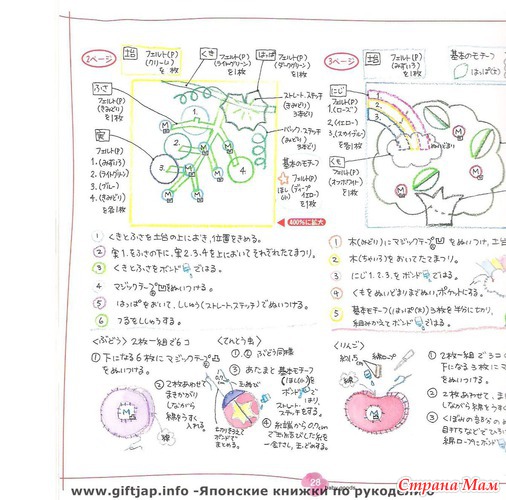 2ページ
土台
フェルト(P)
(クリーム)
を1枚
くき
フェルト(P)
(ライトグリーン)
を1枚
はっぱ
フェルト(P)
(ダークグリーン)
を1枚
ふさ
フェルト(P)
(きみどり)
を1枚
実
フェルト(P)
1.(みずいろ)
2.(ライトグリン)
3.(ブルー)
4.(きみどり)
を各1枚
ストレートステッチ
(きみどり)
3本どり
バックステッチ
(みどり)
3本どり
基本のモチーフ
フェルト(P)
ほし(小)
(ディープイエロー)
を1枚
400%に拡大
① くきとふさを土台の上におき、位置をきめる。
② 実1.をふさの下に、実2.3.4を上においてそれぞれたてまつり。
③ くきとふさをボンドではる。
④ マジックテープ凹をぬいつける。
⑤ はっぱをおいて、ししゅう(ストレートステッチ)でぬいつける。
⑥ つるをししゅうする。
<ぶどう> 2枚一組で6コ
① 下になる6枚にマジックテープ凸をぬいつける。
② 2枚あわせてまきかがりしながら綿をうすく入れる。
綿
<てんとう虫>
①、② ぶどう同様
③ あたまと基本モチーフ
(ほし(小))を
ボンドではり、
ストレートステッチをする。
玉ぬび
切りそろえてボンドでまとめる。
3ページ
土台
フェルト(P)
(みずいろ)
を1枚
基本のモチーフ
にじ
フェルト(P)
1.(ローズ)
2.(イエロー)
3.(スカイブルー)
を各1枚
くも
フェルト(P)
(オフホワイト)
を1枚
ぬいどまり
① 木(みどり)にマジックテープ凹をぬいつけ、土
② 木(ちゃいろ)をおいてたてまつり。
③ にじ1.2.3.をボンドではる。
④ くもをぬいどまりまでぬい、ポケットにする。
⑤ 基本モチーフ(はっぱ(大))3枚を半分に切り、
組みかえてボンドではる。
<りんご>
約1.5cm
綿ロープ
綿
① 2枚一組で3コ
下になる3枚にマ
をぬいつける。
② 2枚あわせて、ま
しながら綿をう
28
baby goods
www.giftjap.info -Японские книжки по рукоделию
Страна Мам